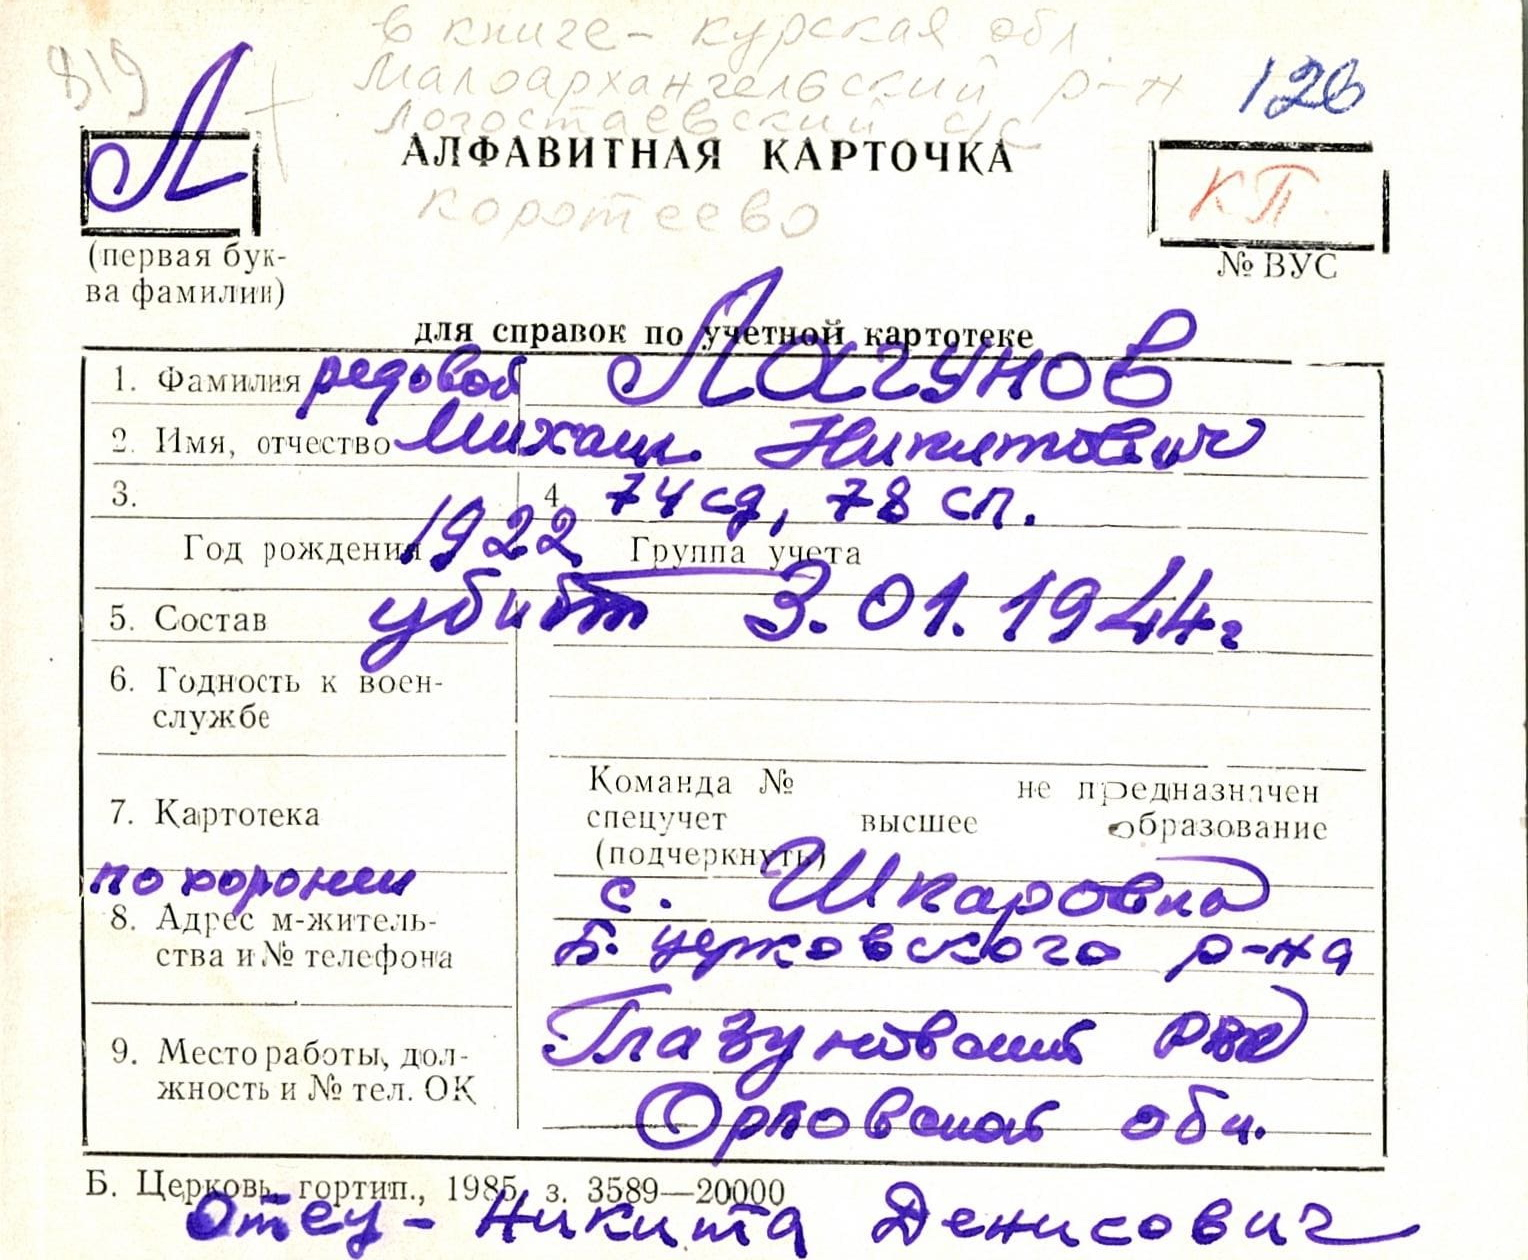 в книге - курская обл.
819
Малоархангельский р-н
126
Логостаевский с/с
Л
АЛФАВИТНАЯ КАРТОЧКА
КП.
коротеево
(первая бук-
ва фамилии)
№ ВУС
для справок по учетной картотеке
1. Фамилия редовой Лагунов
2. Имя, отчество Михаил Никитович
3. 4. 74 сд, 78 сп.
Год рождения 1922 Группа учета
5. Состав убит 3.01.1944г
6. Годность к воен-
службе
7. Картотека
Команда № не предназначен
спецучет высшее образование
(подчеркнуть)
похоронен с. Шкаровка
8. Адрес м-житель-
ства и № телефона
Б. церковского р-на
9. Место работы, дол-
жность и № тел. ОК
Глазуновский РВК
Орловской обл.
Б. Церковь, гортип., 1985, з. 3589—20000
Отец - Никита Денисович